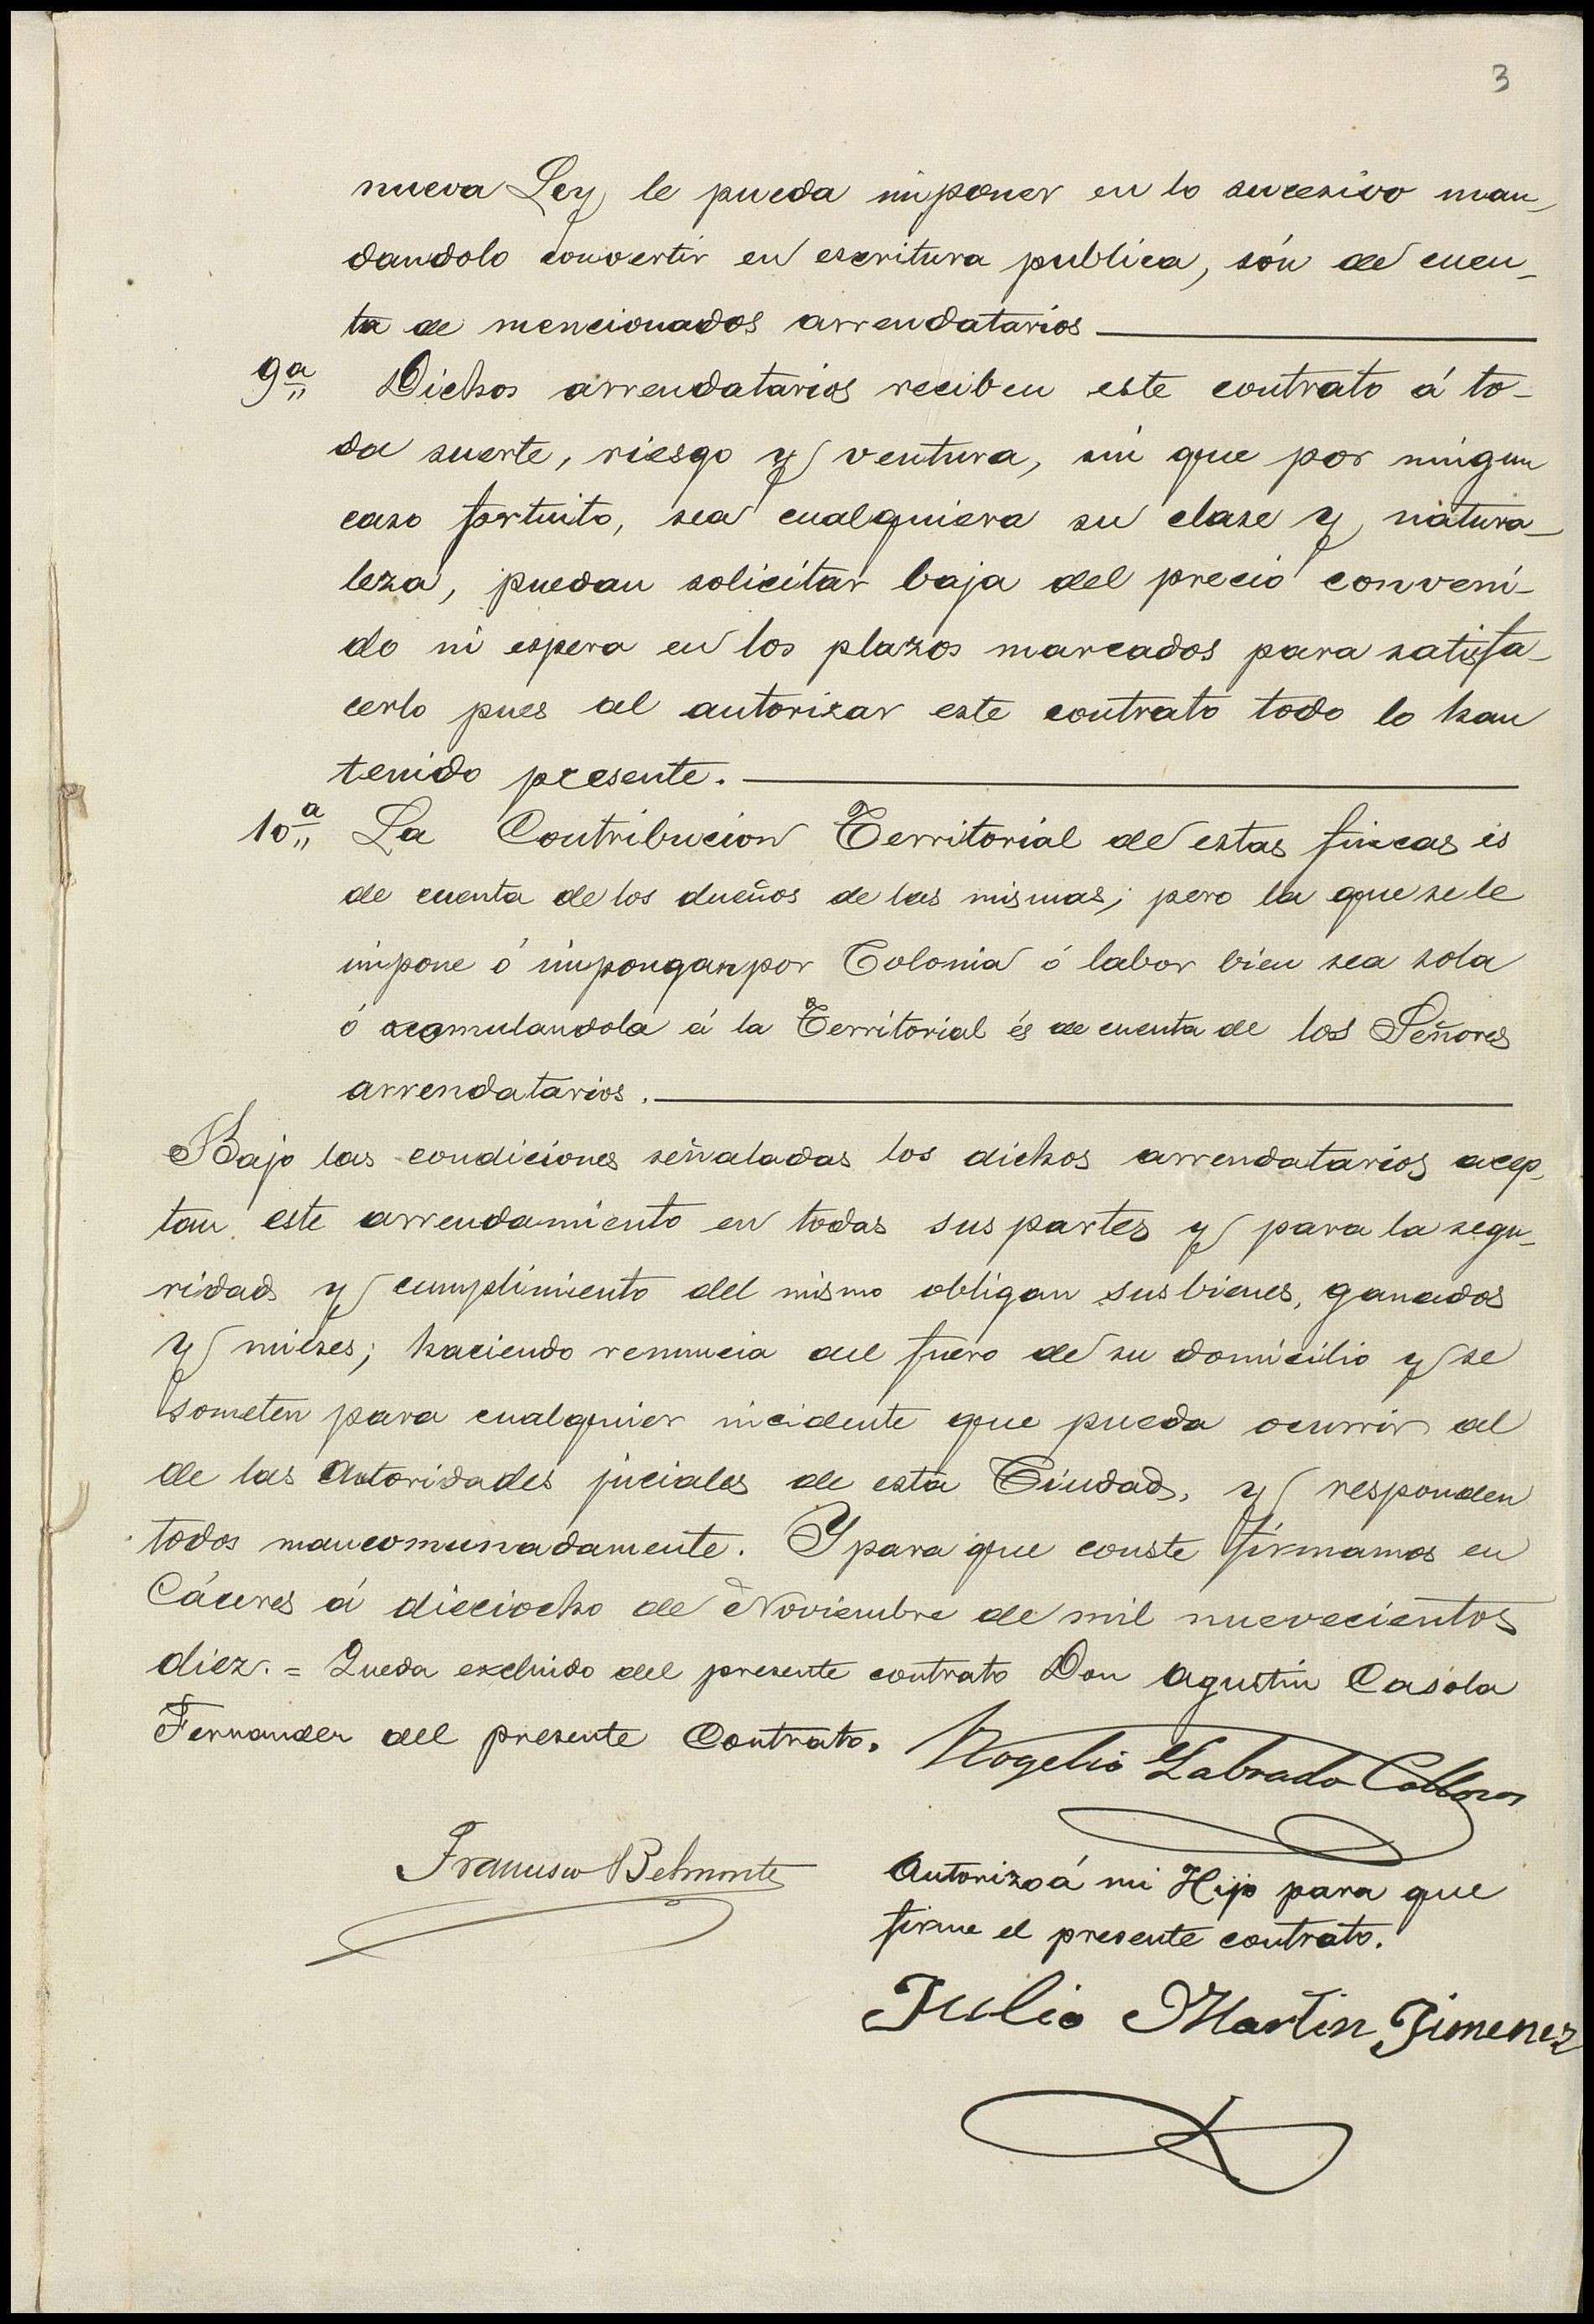 3
nueva Ley le pueda imponer en lo sucesivo man-
dandolo convertir en escritura publica, són de cuen-
ta de mencionados arrendatarios
9ª Dichos arrendatarios reciben este contrato á to-
da suerte, riesgo y ventura, sin que por ningun
caso fortuito, sea cualquiera su clase y natura-
leza, puedan solicitar baja del precio conveni-
do ni espera en los plazos marcados para satisfa-
cerlo pues al autorizar este contrato todo lo han
tenido presente.
10ª La Contribucion Territorial de estas fincas es
de cuenta de los dueños de las mismas; pero la que se le
impone ó impongan por Colonia ó labor bien sea sola
ó acomulandola á la Territorial és de cuenta de los Señores
arrendatarios.
Bajo las condiciones señaladas los dichos arrendatarios acep-
tan este arrendamiento en todas sus partes y para la segu-
ridad y cumplimiento del mismo obligan sus bienes, ganados
y mieses; haciendo renuncia del fuero de su domicilio y se
someten para cualquier incidente que pueda ocurrir al
de las Autoridades juciales de esta Ciudad, y responden
todos mancomunadamente. Y para que conste firmamos en
Cáceres á dieciocho de Noviembre de mil nuevecientos
diez. = Queda excluido del presente contrato Don Agustin Casola
Fernandez del presente Contrato.
Rogelio Labrado
Francisco Belmonte
Autorizo á mi Hijo para que
firme el presente contrato.
Julio Martin Jimenez